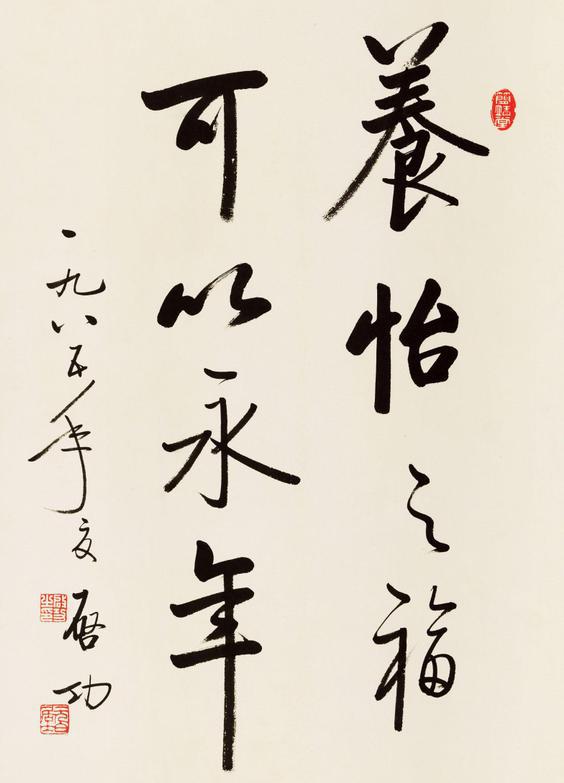 養怡之福
可以永年
一九八五年夏
启功